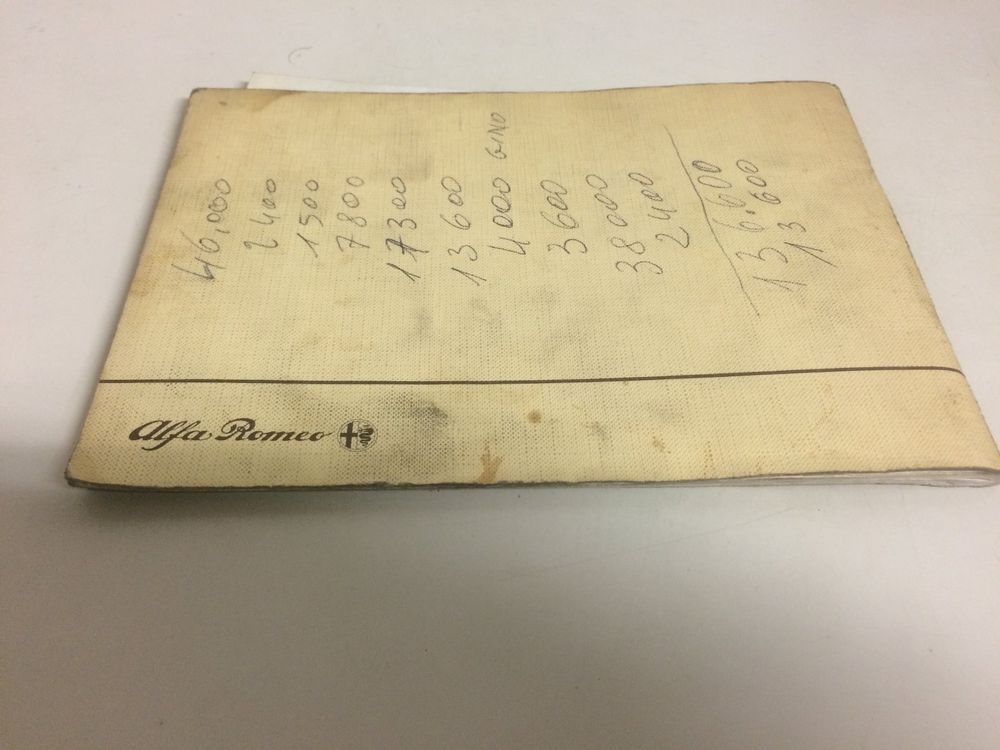 46,000
2400
1500
7800
17300
13600
4000 GINO
3600
38000
2400
136.600
13600
Alfa Romeo